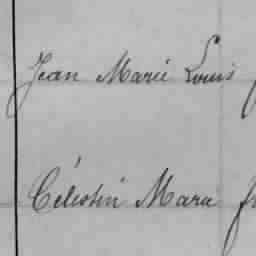 Jean Marie Louis
Célestin Marie